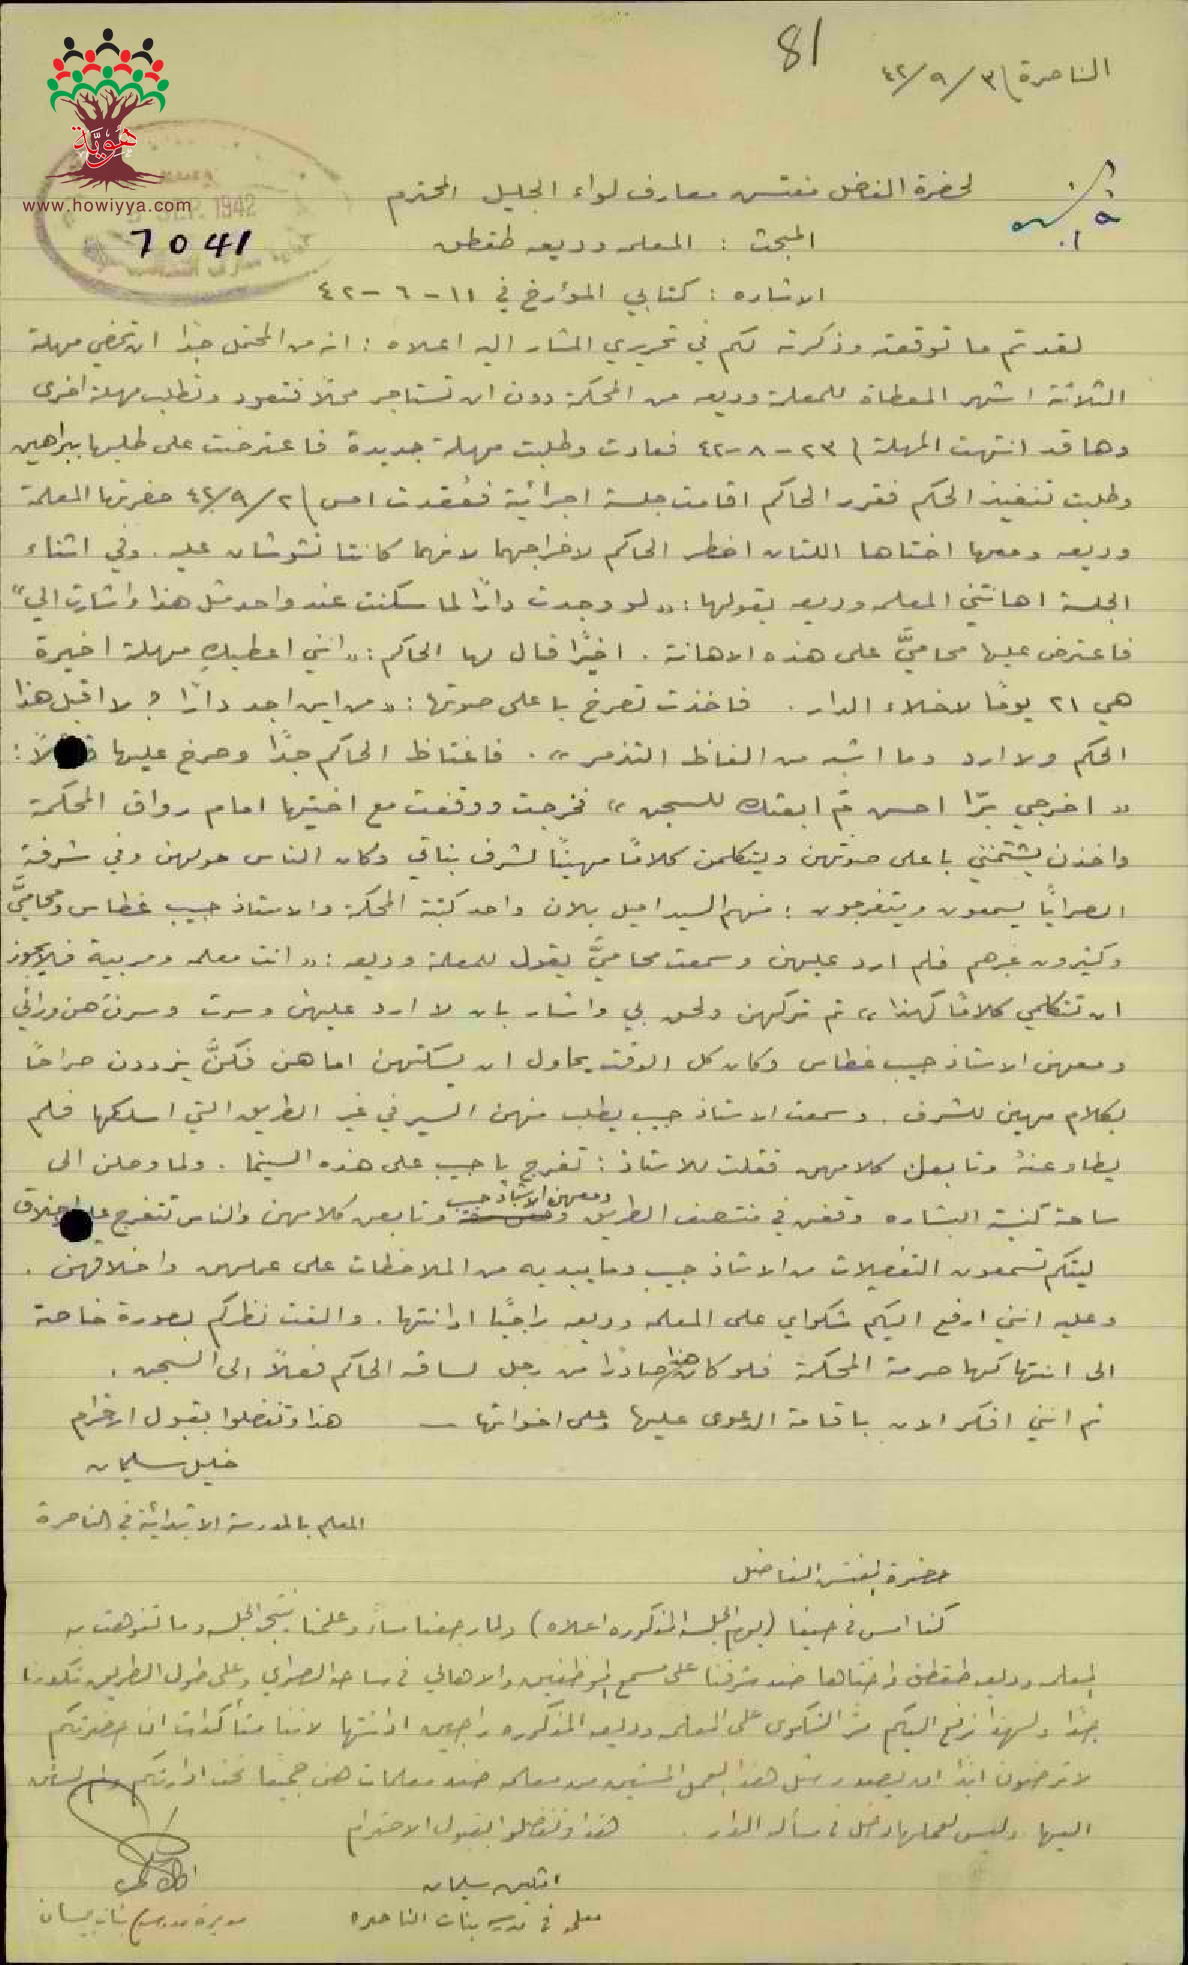 81
الناصرة ٣/٩/٤٢
هوية
www.howiyya.com
SEP. 1942
7041
لحضرة الفاضل مفتش معارف لواء الجليل المحترم
المبحث : المعلمه وديعه طقطق
الاشاره : كتابي المؤرخ في ١١-٦-٤٢
لقد تم ما توقعته وذكرته لكم في تحريري المشار اليه اعلاه : انه من المحتمل جدًا ان تمضي مهلة
الثلاثة اشهر المعطاة للمعلمة وديعه من المحكمة دون ان تستأجر محلًا فتعود وتطلب مهلة اخرى
وها قد انتهت المهلة ٢٣-٨-٤٢ فعادت وطلبت مهلة جديدة فاعترضت على طلبها ببراهين
وطلبت تنفيذ الحكم فقرر الحاكم اقامت جلسة اجرائية فعُقدت امس ٢/٩/٤٢ حضرتها المعلمة
وديعه ومعها اختاها اللتان اضطر الحاكم لاخراجهما لانهما كانتا تشوشان عليه . وفي اثناء
الجلسة اهانتني المعلمه وديعه بقولها : „ لو وجدت دارًا لما سكنت عند واحد مثل هذا واشارت الي "
فاعترض عليها محاميَّ على هذه الاهانة . اخيرًا قال لها الحاكم : „ انني اعطيكِ مهلة اخيرة
هي ٢١ يومًا لاخلاء الدار . فاخذت تصرخ باعلى صوتها : „ من اين اجد دارًا ؟ لا اقبل هذا
الحكم ولا ارد وما اشبه من الفاظ التذمر " . فاغتاظ الحاكم جدًا وصرخ عليها :
„ اخرجي برّا احسن ثم ابعثك للسجن " فخرجت ووقفت مع اختيها امام رواق المحكمة
واخذن يشتمنني باعلى صوتهن ويتكلمن كلامًا مهينًا لشرف بناتي وكان الناس حولهن وفي شرفة
السرايا يسمعون ويتفرجون : منهم السيد اميل بلان واحد كتبة المحكمة والاستاذ حبيب غطاس ومحاميَّ
وكثيرون غيرهم فلم ارد عليهن وسمعت محاميَّ يقول للمعلمة وديعه : „ انت معلمه ومربية فلا يجوز
ان تتكلمي كلامًا كهذا " ثم تركهن ولحق بي واشار بان لا ارد عليهن وسرت وسرن هن ورائي
ومعهن الاستاذ حبيب غطاس وكان كل الوقت يحاول ان يسكتهن اما هن فكنَّ يزددن صراخًا
بكلام مهين للشرف . وسمعت الاستاذ حبيب يطلب منهن السير في غير الطريق التي اسلكها فلم
يطاوعنهُ وتابعن كلامهن فقلت للاستاذ : تفرج يا حبيب على هذه السينما . ولما وصلن الى
ساحة كنيسة البشاره وقفن في منتصف الطريق ومعهن الاستاذ حبيب وتابعن كلامهن والناس تتفرج على اخلاق
ليتكم تسمعون التفصيلات من الاستاذ حبيب وما يبديه من الملاحظات على عملهن واخلاقهن .
وعليه انني ارفع اليكم شكواي على المعلمه وديعه راجيًا ادانتها . والفت نظركم بصورة خاصة
الى انتهاكها حرمة المحكمة فلو كان هذا صادرًا من رجل لساقه الحاكم فعلًا الى السجن .
ثم انني افكر الان باقامة الدعوى عليها وعلى اخواتها — هذا وتفضلوا بقبول احترام
خليل سليمان
المعلم بالمدرسة الابتدائية في الناصرة
حضرة المفتش الفاضل
كنا امس في حيفا (يوم الجلسة المذكوره اعلاه) ولما رجعنا مساءً وعلمنا بنتيجة الجلسه وما تفوهت به
المعلمه وديعه طقطق واختاها ضد شرفنا على مسمع الموظفين والاهالي في ساحة السراي وعلى طول الطريق تكدرنا
جدًا ولهذا نرفع اليكم مر الشكوى على المعلمه وديعه المذكوره راجين ادانتها لاننا متأكدات ان حضرتكم
لا ترضون ابدًا ان يصدر مثل هذا العمل المشين من معلمه ضد معلمات هن جميعًا تحت ادارتكم
اليها وليس لعملها دخل في مسألة الدار . هذا وتفضلوا بقبول الاحترام
سليمان
معلمه في مدرسة بنات الناصره
مديرة مدرسة بنات بيسان